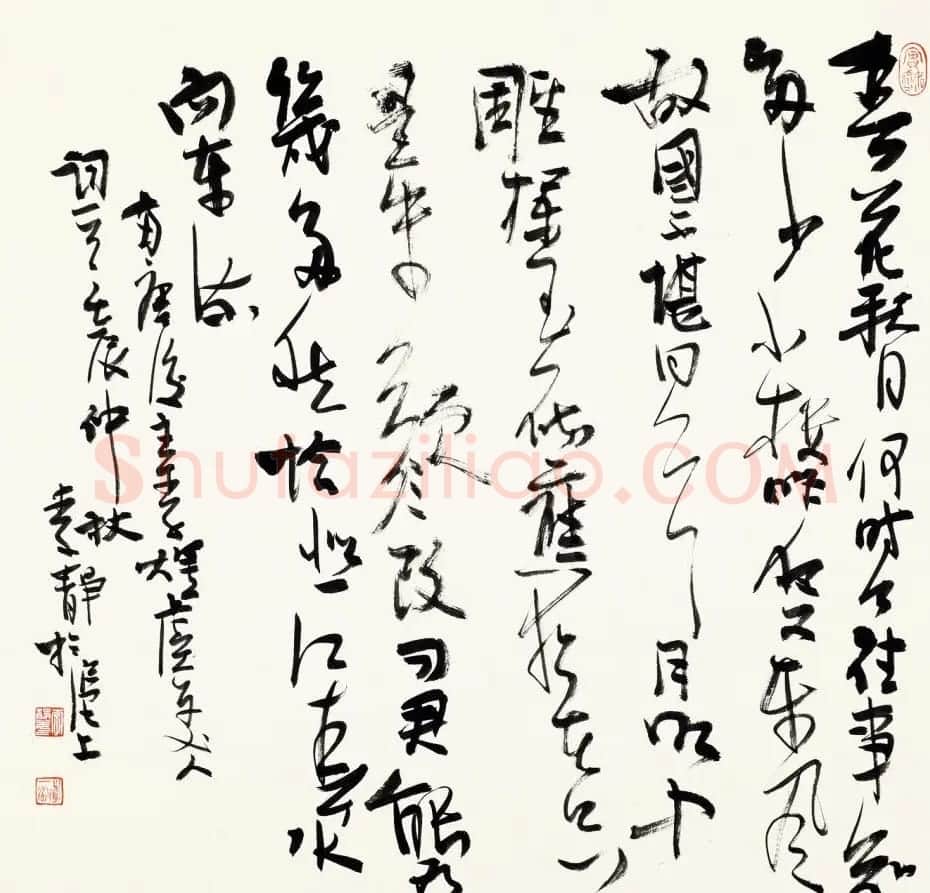 春花秋月何时了往事知
多少小楼昨夜又东风
故國不堪回首月明中
雕栏玉砌應犹在只
是朱颜改问君能有
幾多愁恰似一江春水
向东流
南唐後主李煜虞美人
词一首壬辰仲秋
李静於沪上
Shufaziliao.COM